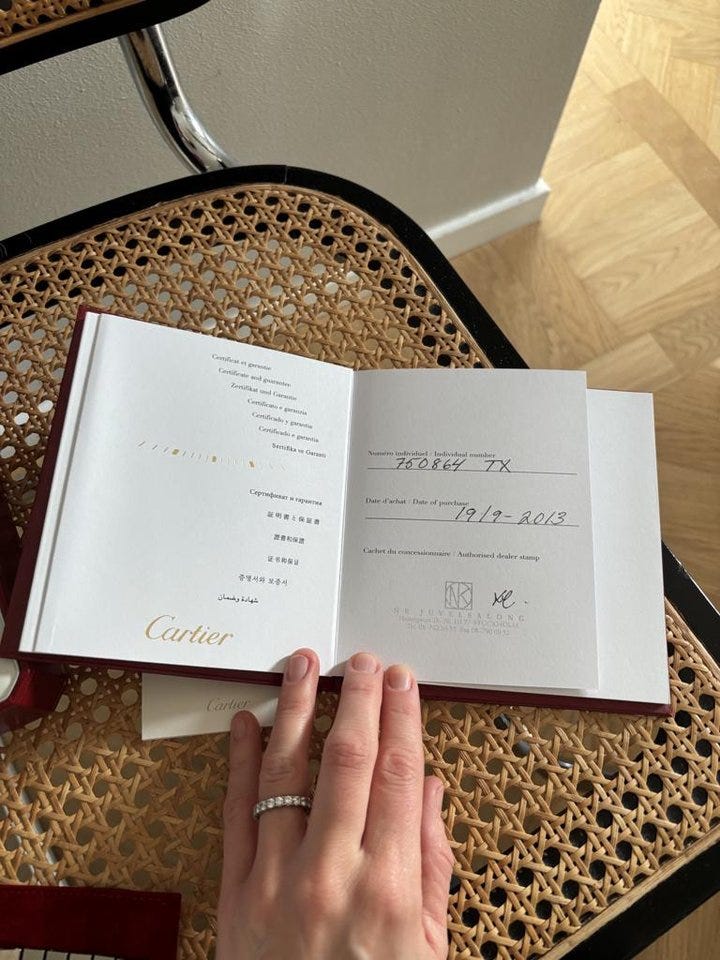 Certificat et garantie
Certificate and guarantee
Zertifikat und Garantie
Certificato e garanzia
Certificado y garantía
Certificado e garantia
Sertifika ve Garanti
Сертификат и гарантия
証明書と保証書
證書和保證
证书和保证
증명서와 보증서
شهادة وضمان
Cartier
Numéro individuel / Individual number
750864 TX
Date d'achat / Date of purchase
19/9-2013
Cachet du concessionnaire / Authorised dealer stamp
NK
NK JUVELSALONG
Cartier